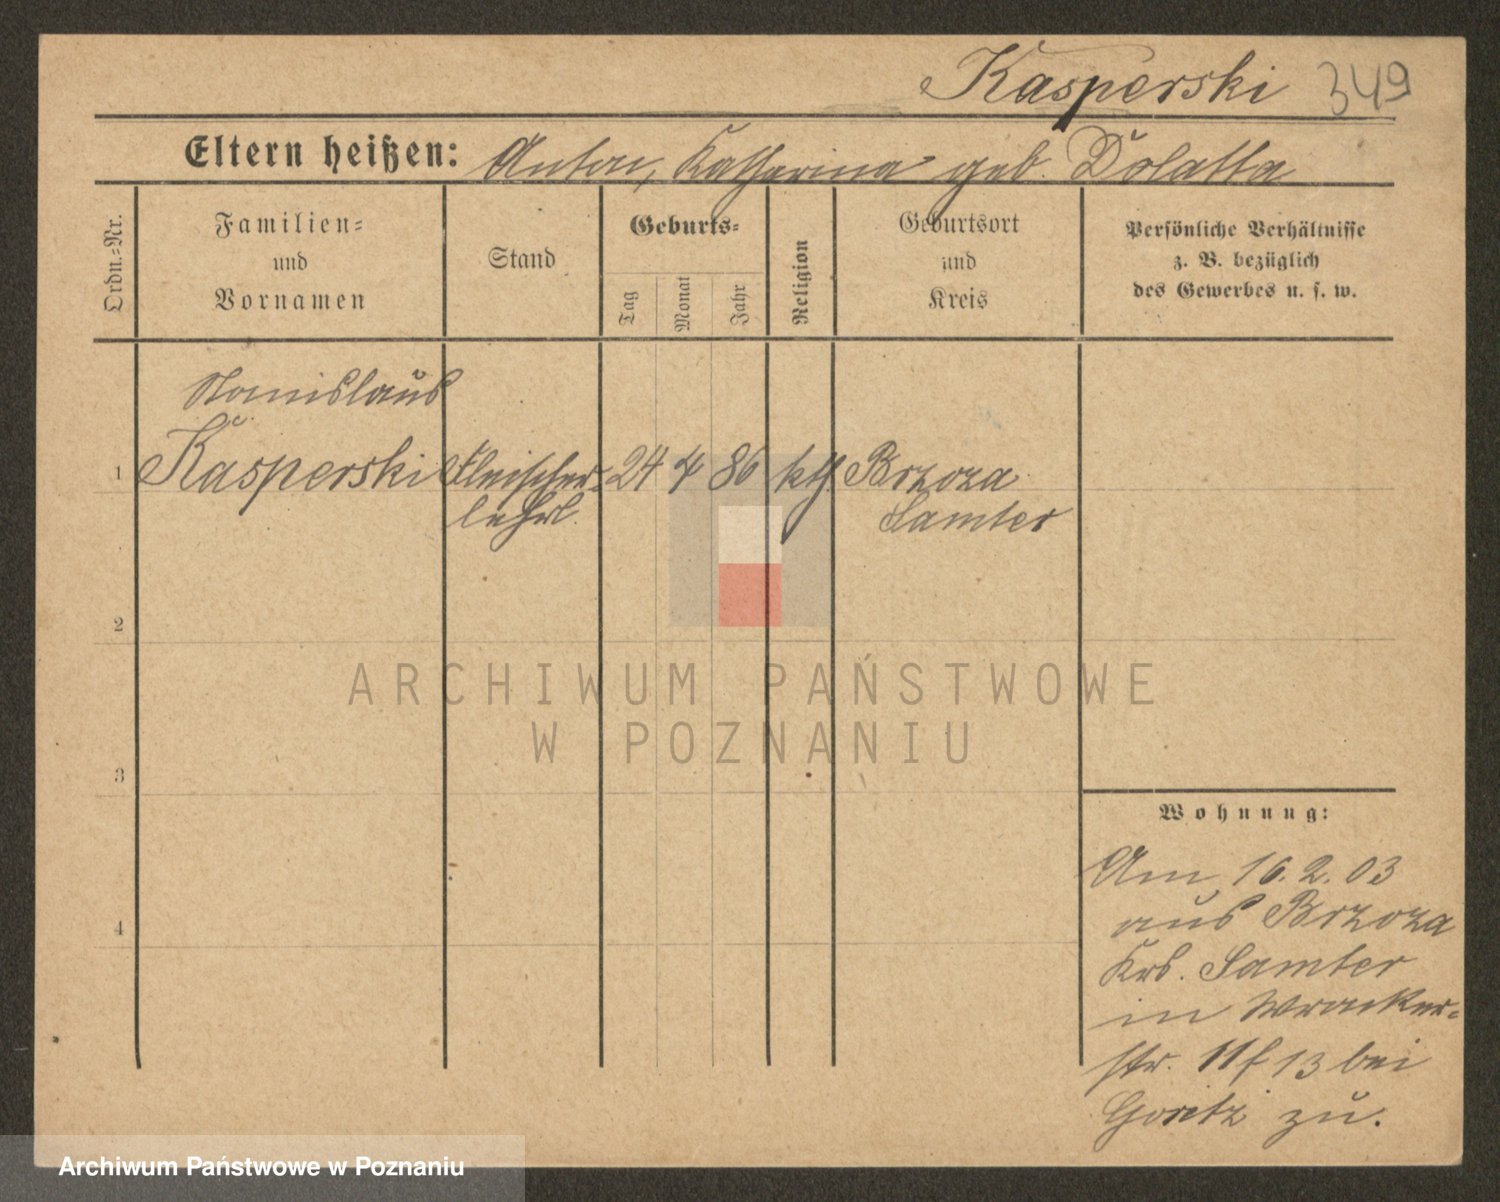 Kasperski 349
Eltern heißen: Anton, Katharina geb. Dolatta
Ordn.-Nr.
Familien-
und
Vornamen
Stand
Geburts-
Tag
Monat
Jahr
Religion
Geburtsort
und
Kreis
Persönliche Verhältnisse
z. B. bezüglich
des Gewerbes u. s. w.
Stanislaus
1 Kasperski Fleischer- 24 4 86 kth. Brzoza
lehrl. Samter
2
3
4
Wohnung:
Am 16.2.03
aus Brzoza
Krs. Samter
in
str. 11/13 bei
Goretzki zu.
ARCHIWUM PAŃSTWOWE
W POZNANIU
Archiwum Państwowe w Poznaniu